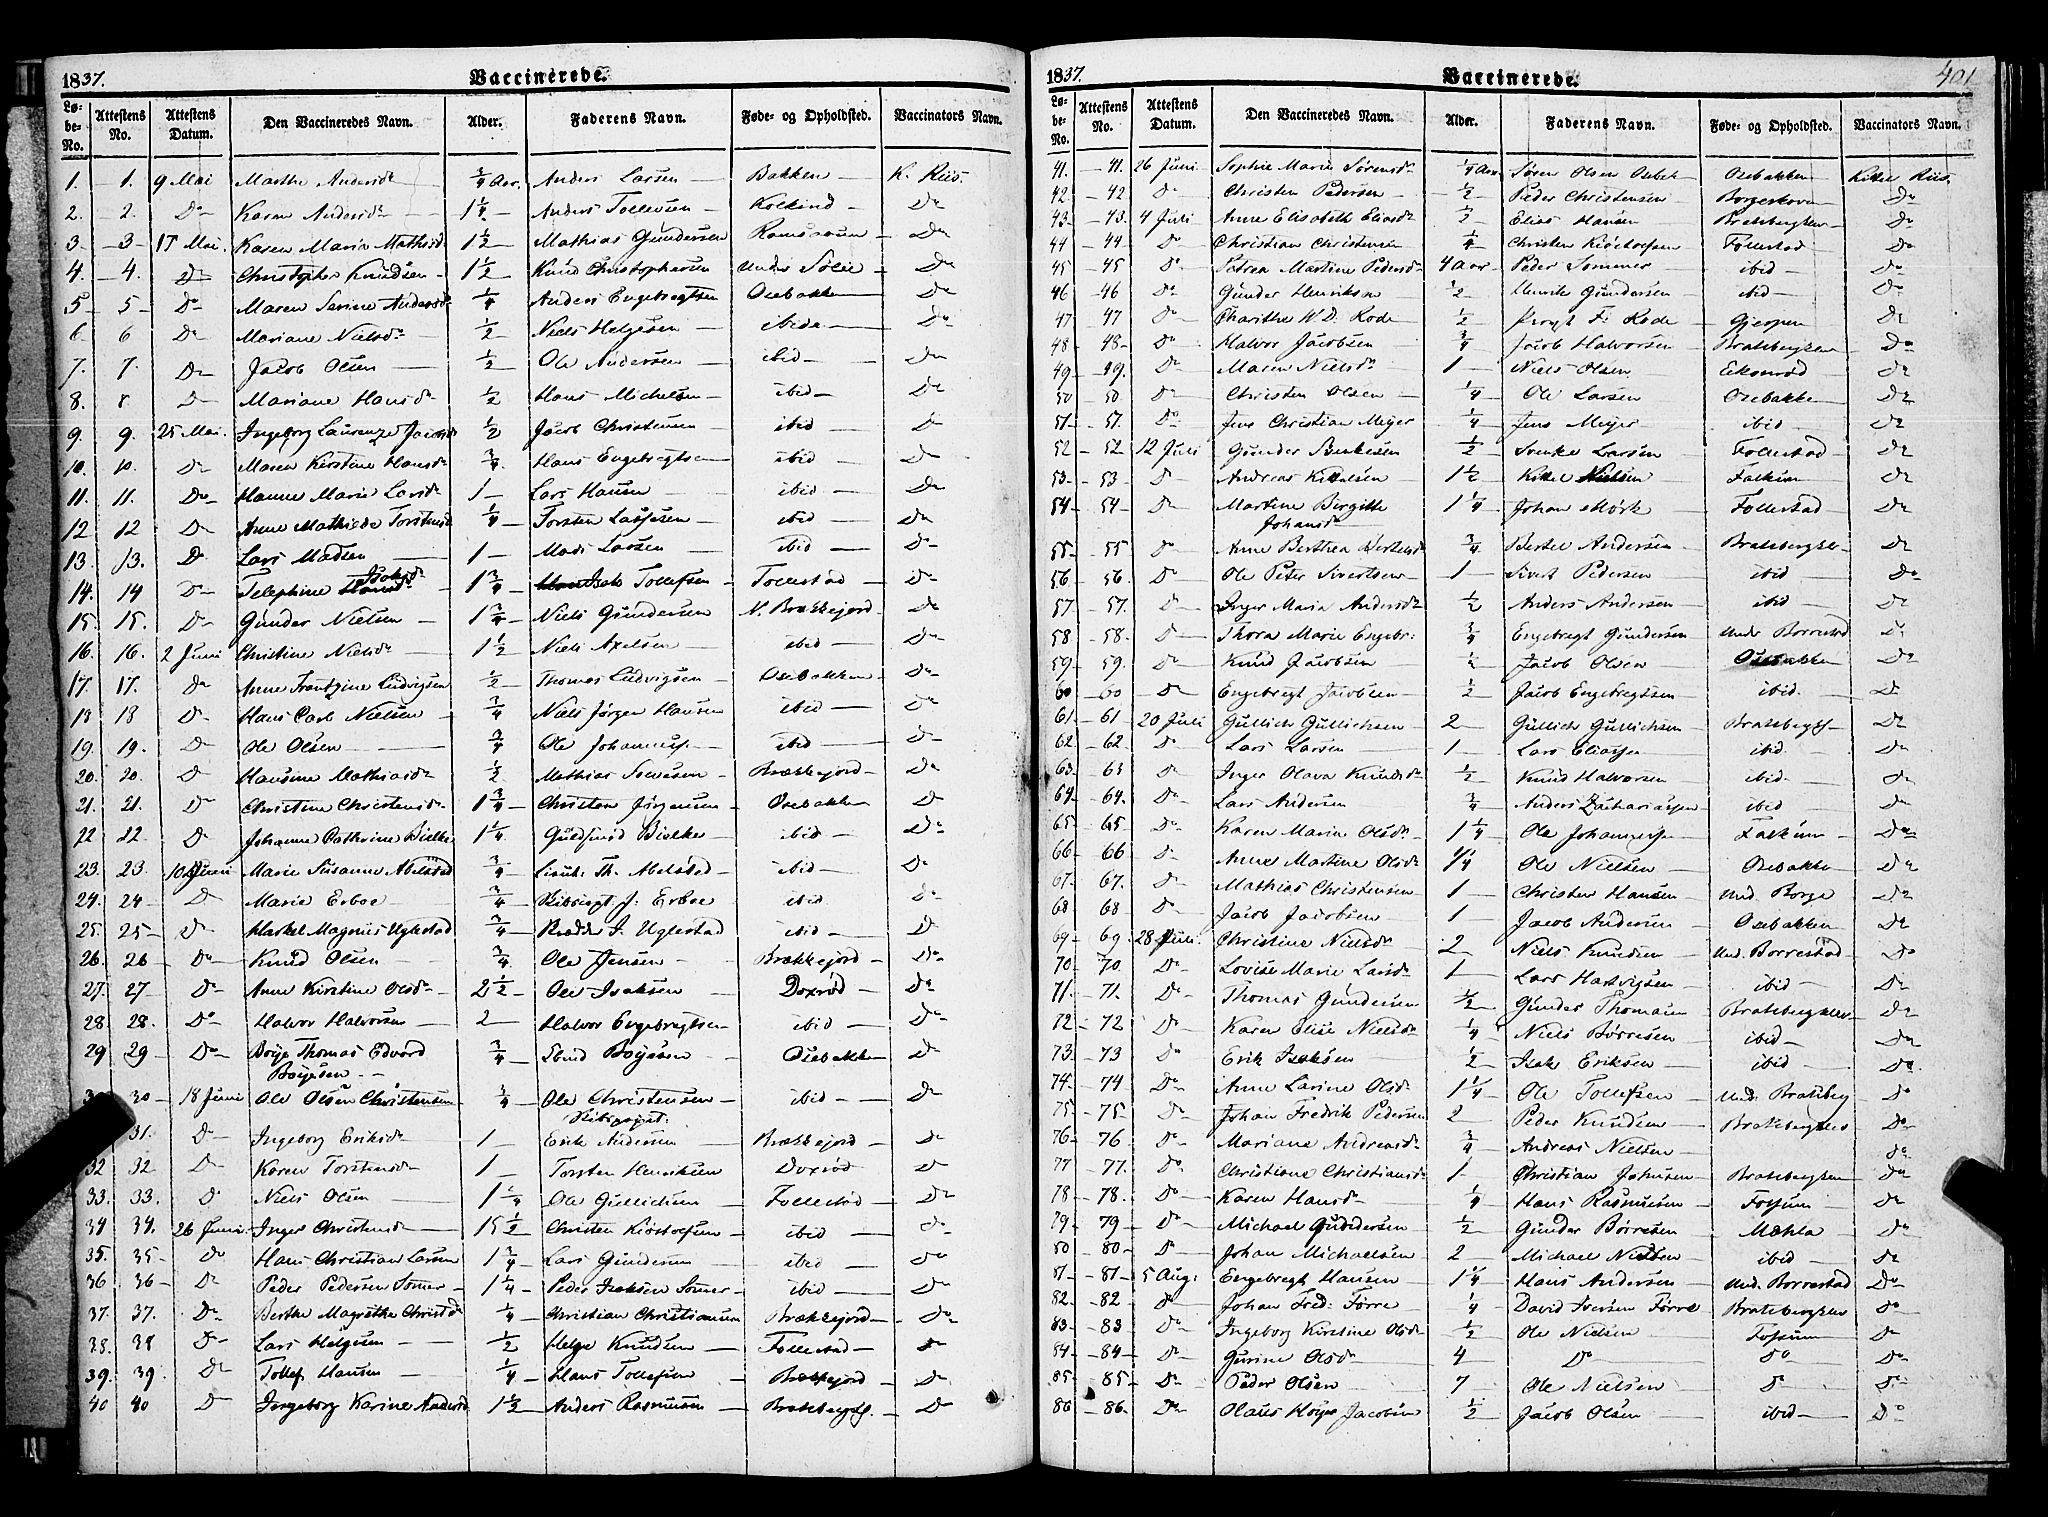 1837.
Vaccinerede.
Lø-be-No. Attestens No. Attestens Datum. Den Vaccineredes Navn. Alder. Faderens Navn. Føde- og Opholdsted. Vaccinators Navn.
1. 1. 9 Mai Marthe Andersdr ¼ Aar. Anders Larsen Bakken K. Riis.
2. 2. Do Karen Andersdr 1¼ Anders Tollevsen Do
3. 3 17 Mai Karen Maria Mathisdr 1½ Mathias Gundersen Do
4. 4. Do Christopher Knudsen 1½ Knud Christophersen Do
5 5 Do Maren Serine Andersdr ¼ Anders Engebregtsen Osebakken Do
6. 6 Do Mariane Nielsdr ½ Niels Helgesen ibid Do
7. 7. Do Jacob Olsen ½ Ole Andersen ibid Do
8. 8 Do Mariane Hansdr ½ Hans Michelsen ibid Do
9. 9. 25 Mai. Ingeborg Laurenze Jacobsdr ½ Jacob Christensen ibid Do
10. 10. Do Maren Kirstine Hansdr ¾ Hans Engebregtsen ibid Do
11. 11. Do Hanne Marie Larsdr 1 Lars Hansen ibid Do
12 12 Do Anne Mathilde Torstensdr ¼ Torsten Lassesen ibid Do
13. 13. Do Lars Madsen 1 Mads Larsen ibid Do
14. 14 Do Telephine Isaksdr 1¾ Isak Tollefsen Follestad Do
15. 15. Do Gunder Nielsen 1¾ Niels Gundersen N. Brækkejord Do
16. 16. 2 Juni Christine Nielsdr 1½ Niels Axelsen ibid Do
17. 17. Do Anne Frantzine Ludvigsen ½ Thomas Ludvigsen Osebakken Do
18 18 Do Hans Carl Nielsen ¾ Niels Jørgen Hansen ibid Do
19. 19. Do Ole Olsen ¾ Ole Johanness. ibid Do
20. 20. Do Hansine Mathiasdr ½ Mathias Brækkejord Do
21. 21. Do Christine Christensdr 1¾ Christen Jørgensen Osebakken Do
22 22 Do Johanne Cathrine Bielke 1¼ Guldsmed Bielke ibid Do
23. 23 10 Juni Marie Susanne Abelsted ¾ Lieut: Th. Abelsted ibid Do
24. 24 Do Marie Erboe ¾ Skibscapt. J. Erboe ibid Do
25. 25 Do Harkel Magnus Uglestad ¾ J. Uglestad ibid Do
26. 26 Do Knud Olsen ¾ Ole Jensen Brækkejord Do
27. 27 Do Anne Kirstine Olsdr 2½ Ole Isaksen Doxrød Do
28. 28. Do Halvor Halvorsen 2 Halvor Engebregtsen ibid Do
29 29 Do Boye Thomas Edvard Boyesen ¾ Boyesen Osebakken Do
30 18 Juni Ole Olsen Christensen ¾ Ole Christensen Skibscapt. ibid Do
31. Do Ingeborg Eriksdr 1 Erik Andersen Brækkejord Do
32 32 Do Karen Torstensdr 1 Torsten Henriksen Doxrød Do
33. 33. Do Niels Olsen 1¼ Ole Gullichsen Follestad Do
34 34. 26 Juni Inger Christensdr 15½ Christen Kiostolfsen ibid Do
35. 35 Do Hans Christian Larsen 1¾ Lars Gundersen ibid Do
36 36 Do Peder Pedersen Somer 1¼ Peder Isaksen Somer ibid Do
37. 37. Do Berthe Magrethe Christdr ¼ Christian Christiansen Brækkejord Do
38. 38 Do Lars Helgesen ½ Helge Knudsen Follestad Do
39. 39 Do Tollef Hansen ¼ Hans Tollefsen Brækkejord Do
40 40 Do Ingeborg Karine Andersdr 1½ Anders Rasmusen Bratsbergkl. Do
1837.
Vaccinerede.
401
Lø-be-No. Attestens No. Attestens Datum. Den Vaccineredes Navn. Alder. Faderens Navn. Føde- og Opholdsted. Vaccinators Navn.
41. 41. 26 Juni Sophie Marie Sørensdr ¼ Aar Søren Olsen Osebakken Kittel Riis.
42. 42 Do Christen Pedersen ½ Peder Christensen Borgeskoven Do
43. 43. 4 Juli Anne Elisabeth Eliasdr ½ Elias Hansen Bratsbergklev Do
44 44. Do Christian Christensen ¼ Christen Kiostolfsen Follestad Do
45 45 Do Petrea Martine Pedersdr 4 Aar Peder Sommer ibid Do
46 46 Do Gunder Henriksen ½ Henrik Gundersen ibid Do
47 47 Do Charithe W.D. Rode ½ F. Rode Gjerpen Do
48 48 Do Halvor Jacobsen ¾ Jacob Halvorsen Bratsbergklev Do
49 49. Do Maren Nielsdr 1 Niels Olsen Ekornrød Do
50 50. Do Christen Olsen ¼ Ole Larsen Osebakken Do
51. 51. Do Jens Christian Meyer ¼ Jens Meyer ibid Do
52 52 12 Juli Gunder Svenkesen ½ Svenke Larsen Follestad Do
53. 53 Do Andreas Kittelsen 1½ Kittel Nielsen Falkum Do
54 54 Do Martine Birgitte Johansdr 1¼ Johan Mørk Follestad Do
55 55 Do Anne Berthea Bertelsdr ¾ Bertel Andersen Bratsbergklev Do
56 56. Do Ole Peter Sivertsen 1 Sivert Pedersen ibid Do
57 57. Do Inger Maria Andersdr ½ Anders Andersen ibid Do
58 58. Do Thora Marie Engebr: ¾ Engebregt Gundersen Und. Borrestad Do
59 59. Do Knud Jacobsen ½ Jacob Olsen Osebakken Do
60 60 Do Engebregt Jacobsen ½ Jacob Engebregtsen ibid. Do
61 61 20 Juli Gullich Gullichsen 2 Gullich Gullichsen Bratsbergkl. Do
62 62. Do Lars Larsen 1 Lars Eliassen ibid Do
63 63 Do Inger Olava Knudsdr ½ Knud Halvorsen ibid. Do
64. 64. Do Lars Andersen ¾ Anders Zachariassen ibid Do
65 65 Do Karen Maria Olsdr 1¼ Ole Johanness. Falkum Do
66 66 Do Anne Martine Olsdr ¼ Ole Nielsen Osebakken Do
67. 67. Do Mathias Christensen 1 Christen Hansen Und. Borge Do
68 68 Do Jacob Jacobsen 1 Jacob Andersen Osebakken Do
69 69. 28 Juli. Christine Nielsdr 2 Niels Knudsen Und. Borrestad Do
70 70. Do Lovise Marie Larsdr 1 Lars Hartvigsen ibid Do
71. 71. Do Thomas Gundersen ½ Gunder Thomasen Bratsbergklev Do
72 72 Do Karen Elise Nielsdr ¼ Niels Børresen ibid Do
73. 73 Do Erik Isaksen ½ Isak Eriksen ibid Do
74. 74 Do Anne Larine Olsdr 1¼ Ole Tollefsen Und. Bratsberg Do
75 75 Do Johan Fredrik Pedersen 2 Peder Knudsen Bratsbergklev Do
76 76 Do Mariane Andreasdr ¾ Andreas Nielsen Do
77 77. Do Christiane Christiansdr 1 Christian Johnsen Bratsbergklev Do
78 78. Do Karen Hansdr ¼ Hans Rasmusen Fossum Do
79 79 Do Michael Gundersen ½ Gunder Børresen Mæhla Do
80 80 Do Johan Michaelsen 2 Michael Nielsen ibid Do
81 81 5 Aug: Engebregt Hansen 1¼ Hans Andersen Und. Borrestad Do
82. 82 Do Johan Fred: Førre ¼ David Iversen Førre Bratsbergklev Do
83 83 Do Ingeborg Kirstine Olsdr ½ Ole Nielsen Fossum Do
84 84 Do Gurine Olsdr 4 Do Do Do
85 85 Do Peder Olsen 7 Ole Nielsen Do Do
86 86. Do Olaus Høyer Jacobsen ½ Jacob Olsen ibid Do